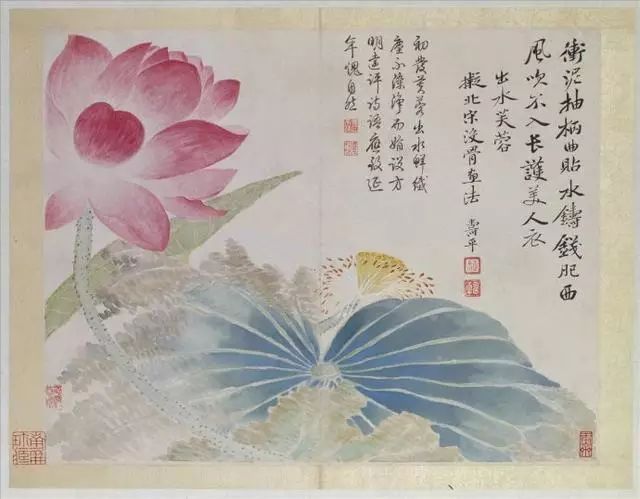 衝泥抽柄曲貼水鑄錢肥西
風吹不入长護美人衣
出水芙蓉
擬北宋没骨畫法 壽平
初發芙蓉出水鮮纖
塵不染淨而娟設方
明遠評詩語應教延
年愧自然